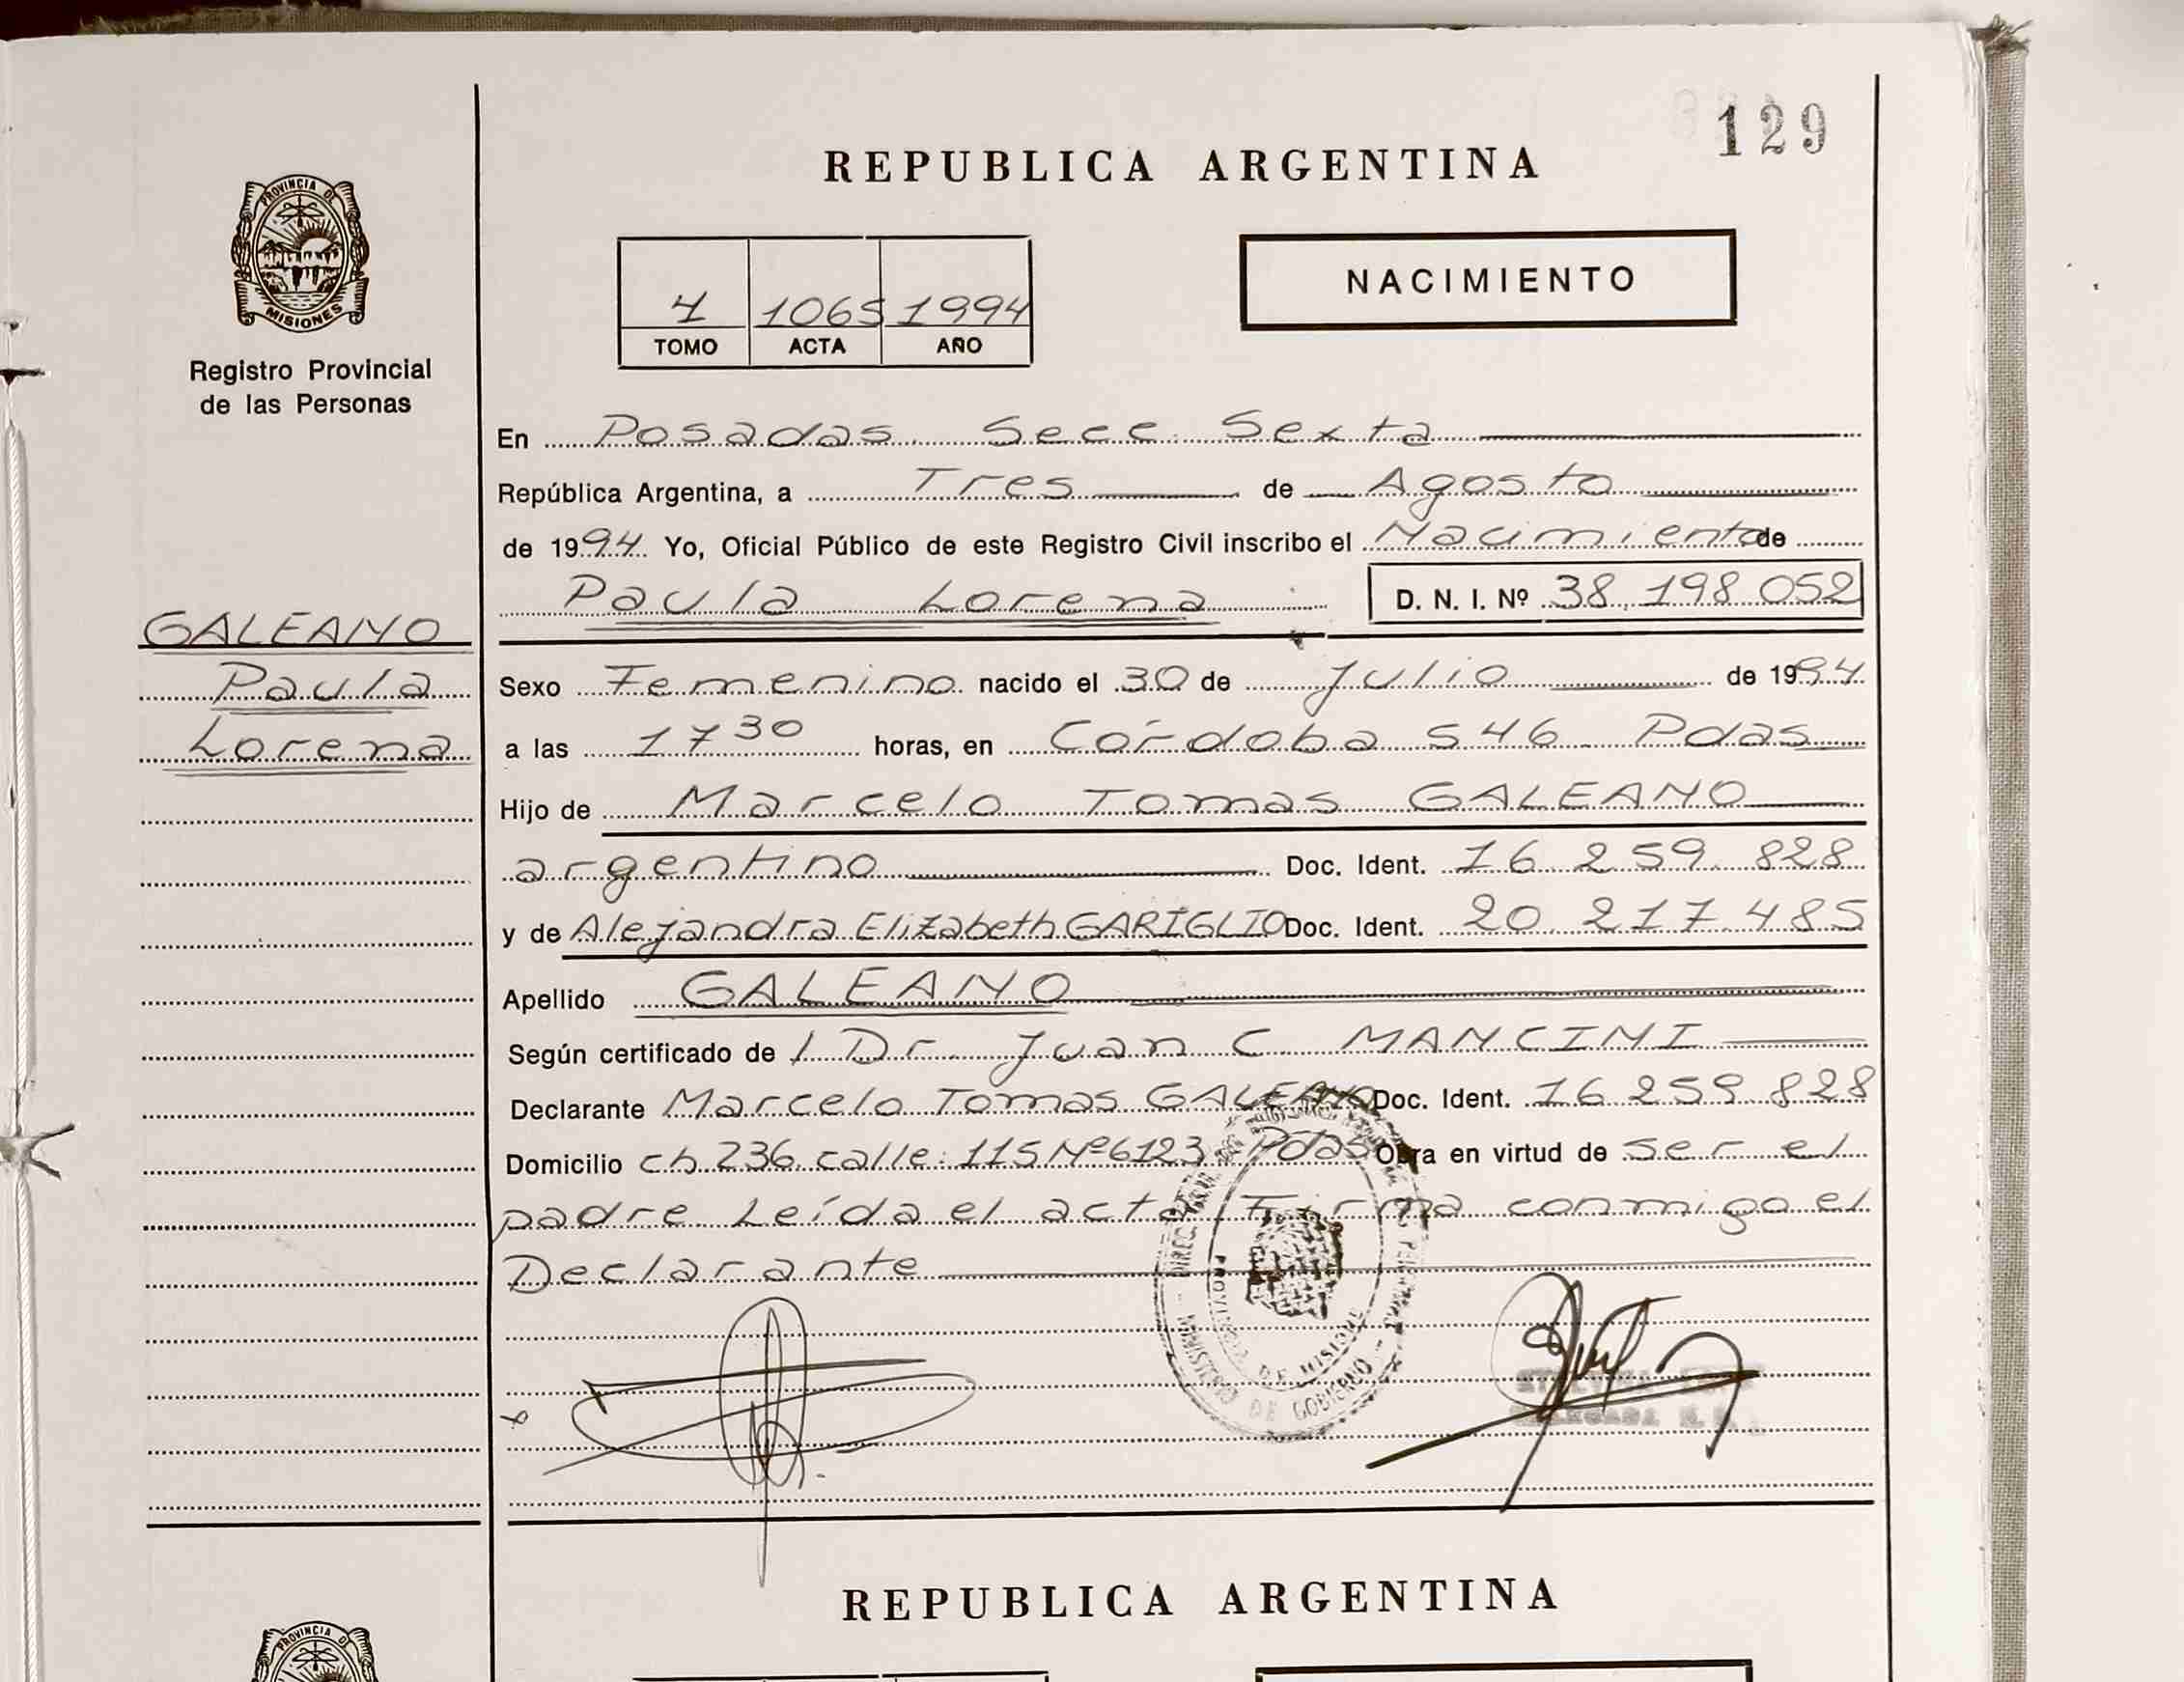 129
REPUBLICA ARGENTINA
PROVINCIA DE
MISIONES
Registro Provincial
de las Personas
4 1065 1994
TOMO ACTA AÑO
NACIMIENTO
En Posadas Secc. Sexta
República Argentina, a Tres de Agosto
de 1994. Yo, Oficial Público de este Registro Civil inscribo el Nacimiento de
Paula Lorena D. N. I. Nº 38.198.052
GALEANO
Paula
Lorena
Sexo Femenino nacido el 30 de Julio de 1994
a las 17 30 horas, en Córdoba 546 Pdas
Hijo de Marcelo Tomas GALEANO
argentino Doc. Ident. 16.259.828
y de Alejandra Elizabeth GARIGLIO Doc. Ident. 20.217.485
Apellido GALEANO
Según certificado de l Dr. Juan C MANCINI
Declarante Marcelo Tomas GALEANO Doc. Ident. 16 259 828
Domicilio ch. 236 calle: 115 Nº 6123 Pdas Obra en virtud de ser el
padre. Leída el acta Firma conmigo el
Declarante
PROVINCIA DE MISIONES
MINISTERIO DE GOBIERNO
REPUBLICA ARGENTINA
PROVINCIA DE